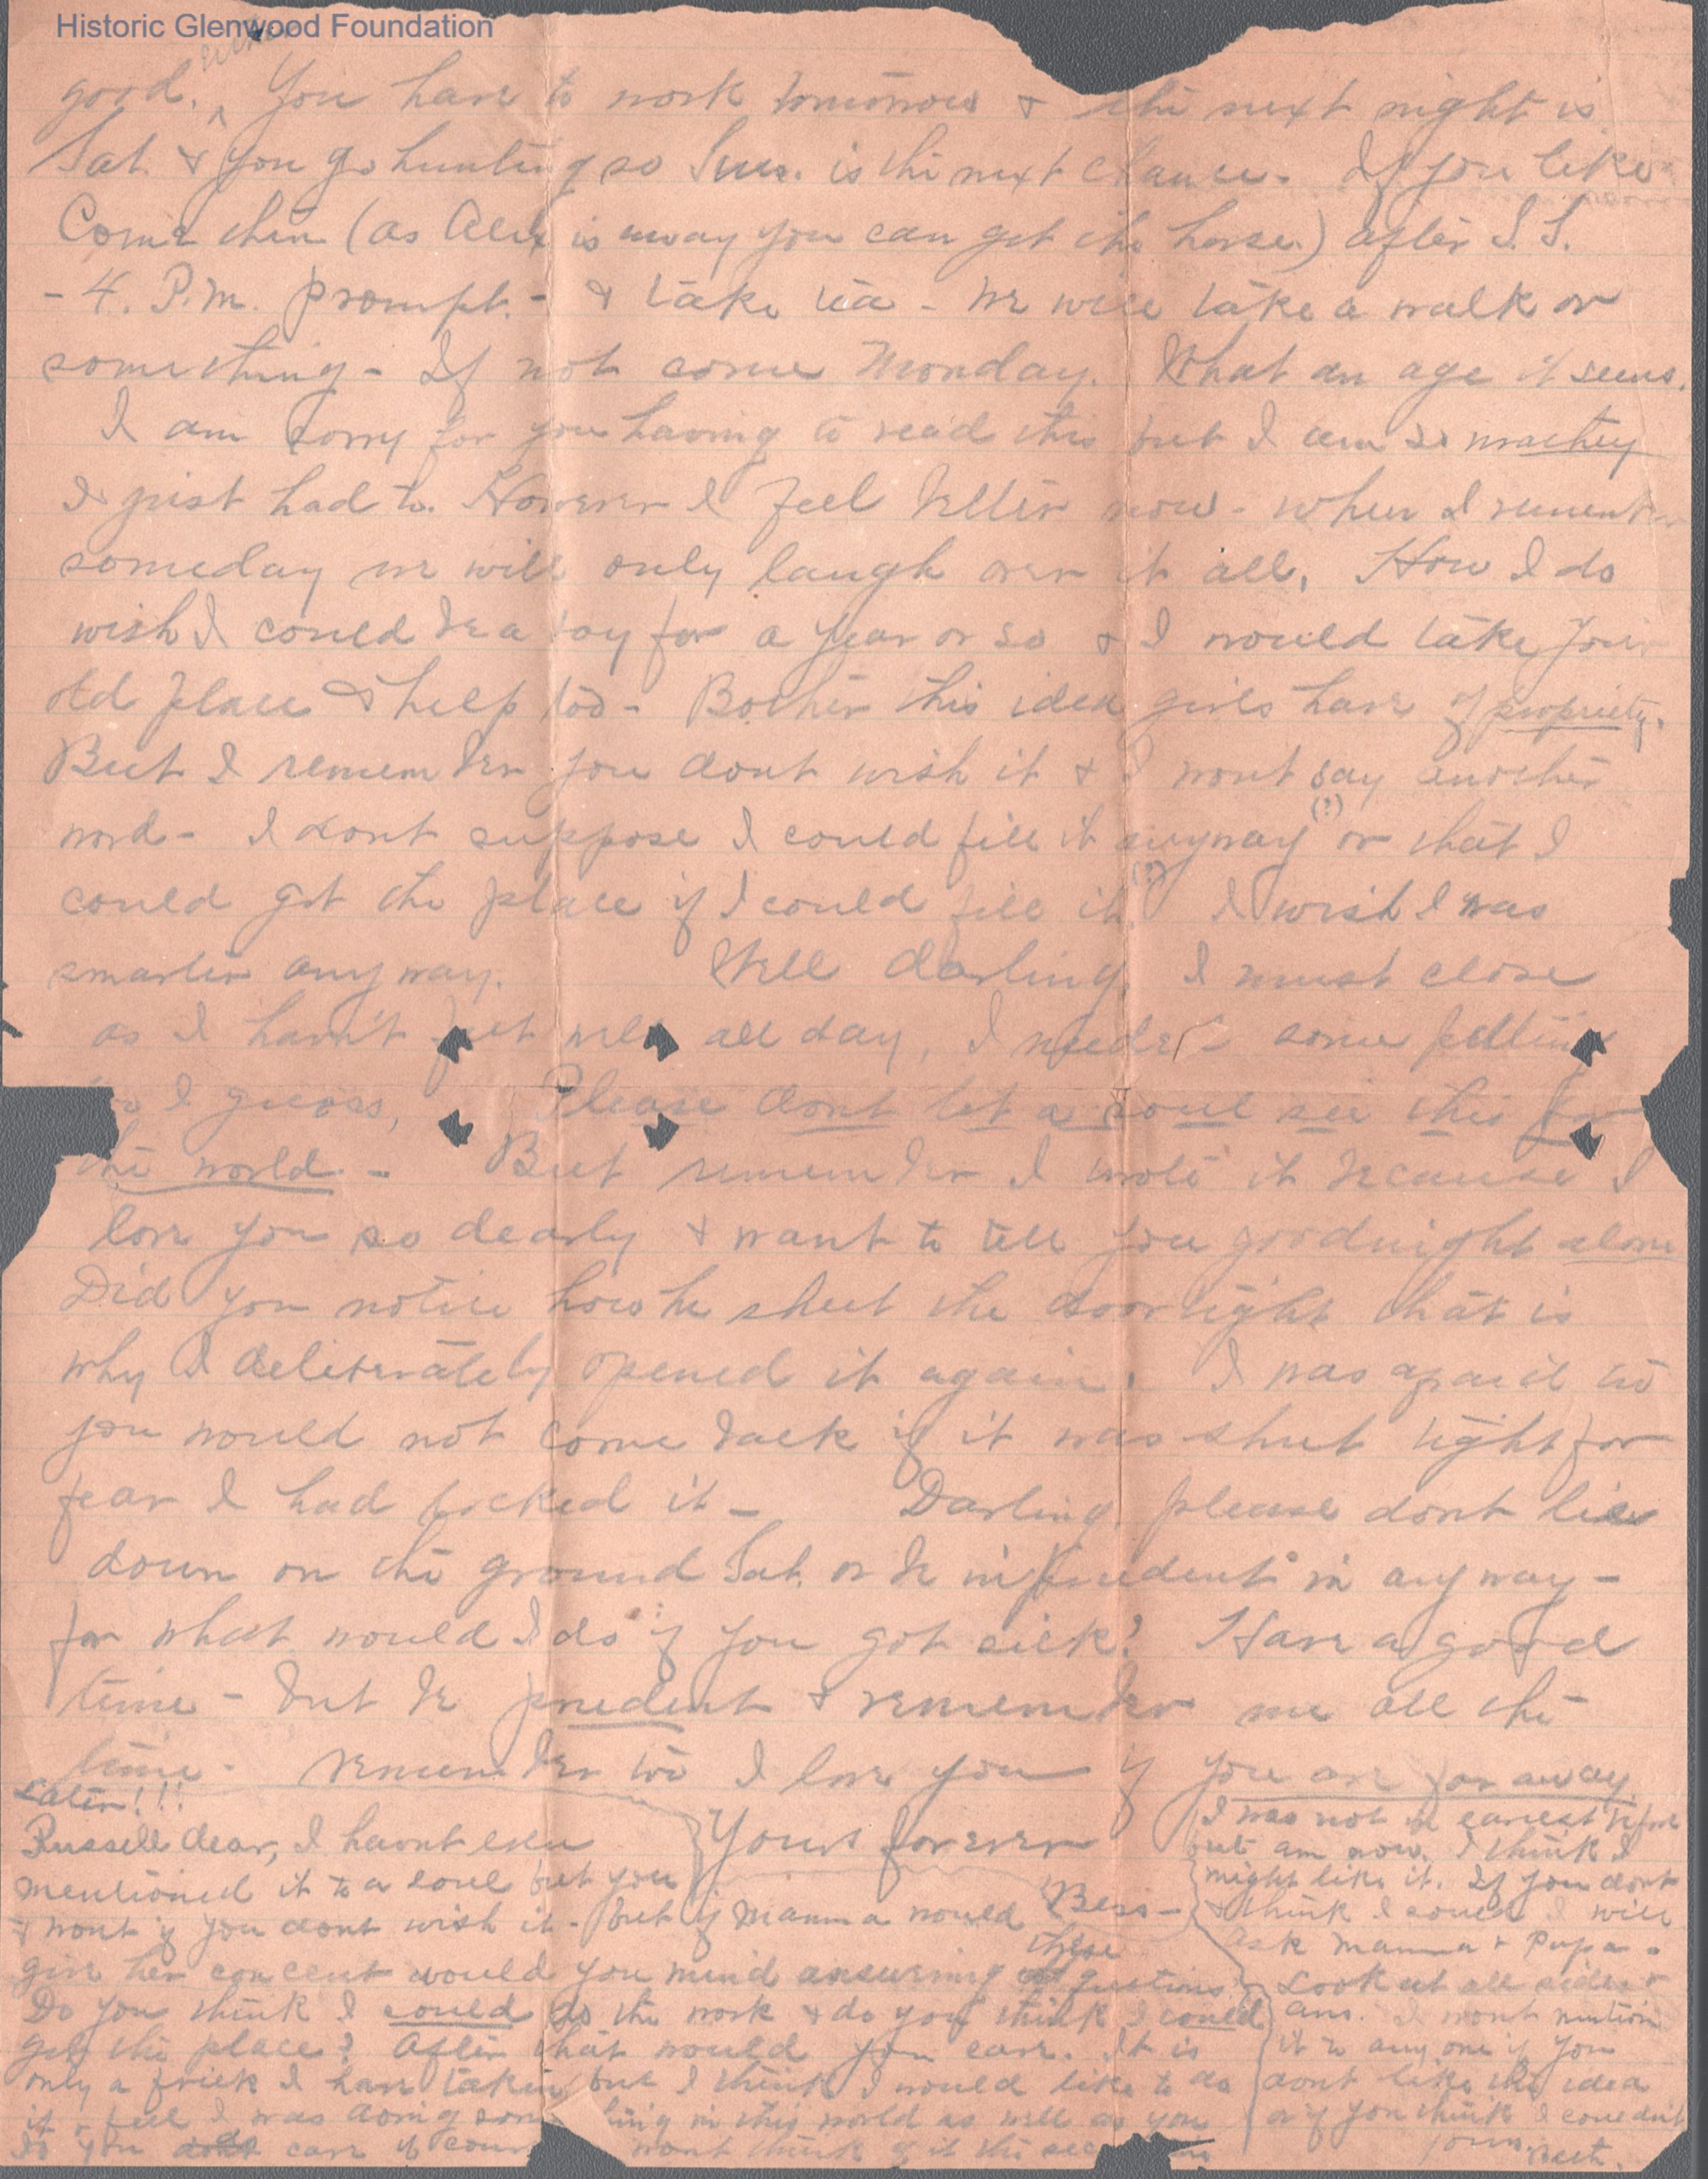 Historic Glenwood Foundation
good. You have to work tomorrow & the next night is
Sat. & you go hunting so Sun. is the next chance. If you like
Come then (as Alex is away you can get the horse.) after S. S.
- 4. P.M. prompt. - & take tea - We will take a walk or
something - If not come Monday. What an age it seems.
I am sorry for you having to read this but I am so
I just had to. However I feel better now - when I remember
someday we will only laugh over it all. How I do
wish I could be a boy for a year or so & I would take your
old place & help too - Bother this idea girls have of propriety.
But I remember you dont wish it & I wont say another
word - I dont suppose I could fill it anyway (?) or that I
could get the place if I could fill it (?) I wish I was
smarter anyway. Well darling I must close
as I havn't felt well all day, I needed some petting
I guess, Please dont let a soul see this for
the world - But remember I wrote it because I
love you so dearly & want to tell you goodnight alone
Did you notice how he shut the door tight that is
why I deliberately opened it again. I was afraid
you would not come back if it was shut tight for
fear I had locked it - Darling please dont lie
down on the ground Sat. or be imprudent in any way -
for what would I do if you got sick? Have a good
time - but be prudent & remember me all the
time - remember I love you if you are far away
Yours forever
Bess -
Later!!!
Russell dear, I havnt even
mentioned it to a soul but you
& wont if you dont wish it - but if Mamma would
give her concent would you mind answering these questions
Do you think I could do the work & do you think I could
get the place? After that would you care. It is
only a freik I have taken but I think I would like to do
it & feel I was doing something in this world as well as you
Do you care if wont think of it
I was not in earnest before
but am now. I think I
might like it. If you dont
think I could I will
ask Mamma & Papa.
Look at all sides &
ans. I wont mention
it to any one if you
dont like the idea
or if you think I couldn't